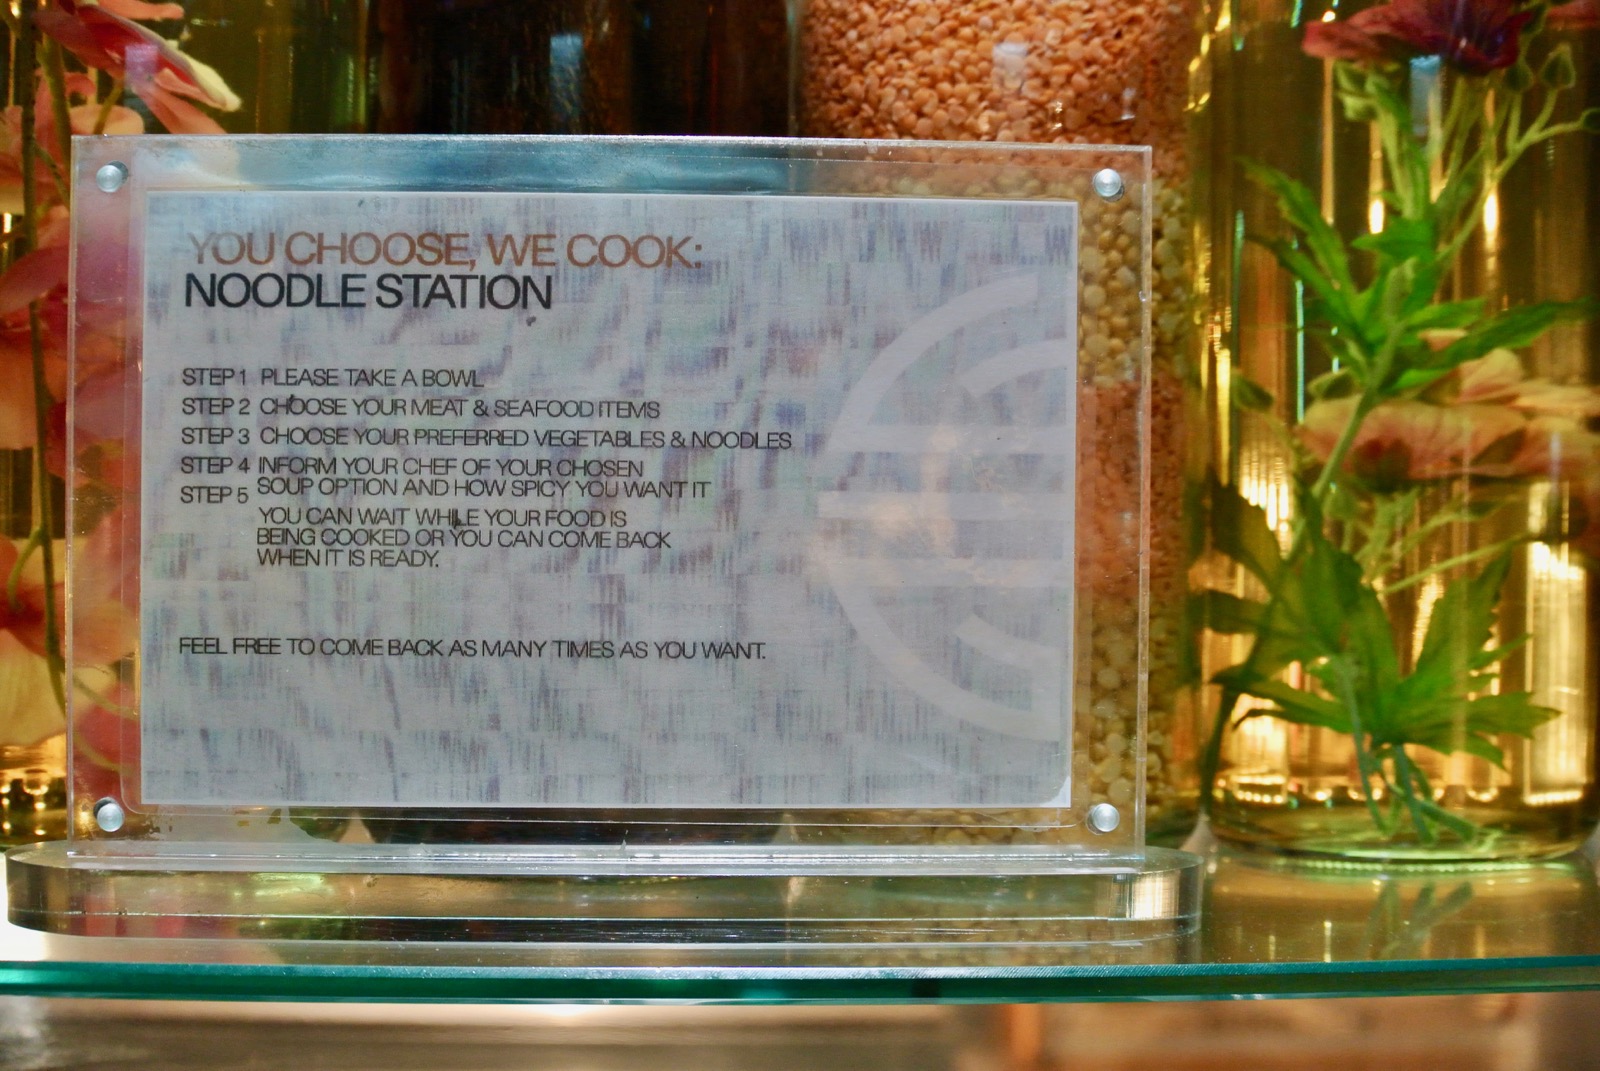 YOU CHOOSE, WE COOK:
NOODLE STATION
STEP 1 PLEASE TAKE A BOWL
STEP 2 CHOOSE YOUR MEAT & SEAFOOD ITEMS
STEP 3 CHOOSE YOUR PREFERRED VEGETABLES & NOODLES
STEP 4 INFORM YOUR CHEF OF YOUR CHOSEN
STEP 5 SOUP OPTION AND HOW SPICY YOU WANT IT
YOU CAN WAIT WHILE YOUR FOOD IS
BEING COOKED OR YOU CAN COME BACK
WHEN IT IS READY.
FEEL FREE TO COME BACK AS MANY TIMES AS YOU WANT.